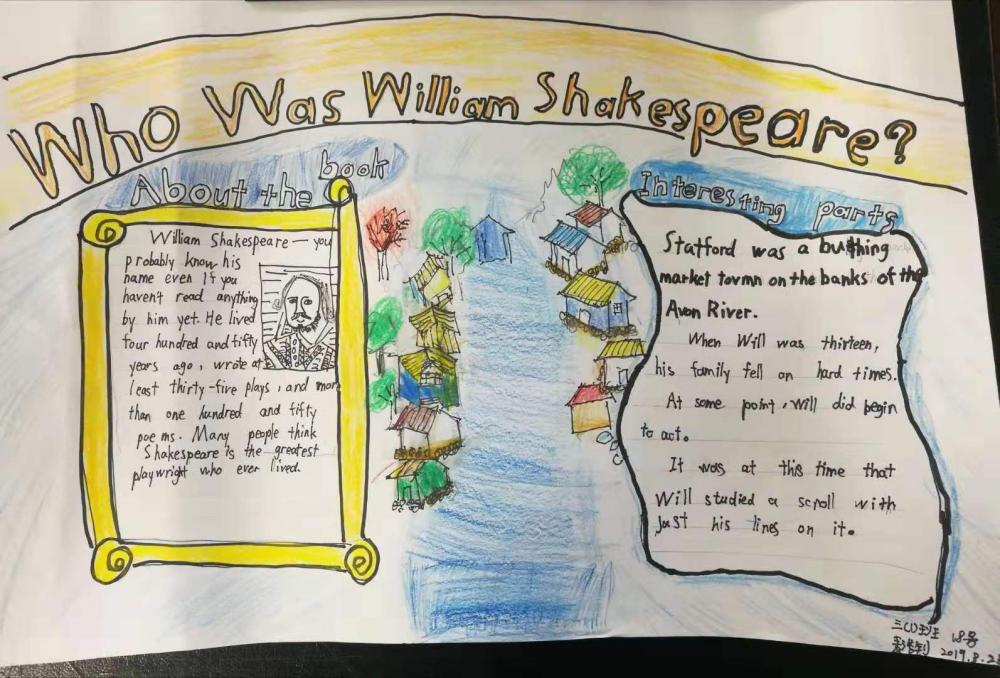 Who Was William Shakespeare?
About the book
William Shakespeare — you
probably know his
name even If you
haven't read anything
by him yet. He lived
four hundred and fifty
years ago, wrote at
least thirty-five plays, and more
than one hundred and fifty
poems. Many people think
Shakespeare is the greatest
playwright who ever lived.
Interesting parts
Statford was a busthing
market tovmn on the banks of the
Avon River.
When Will was thirteen,
his family fell on hard times.
At some point, Will did begin
to act.
It was at this time that
Will studied a scroll with
just his lines on it.
三(1)班 18号
2019.8.2